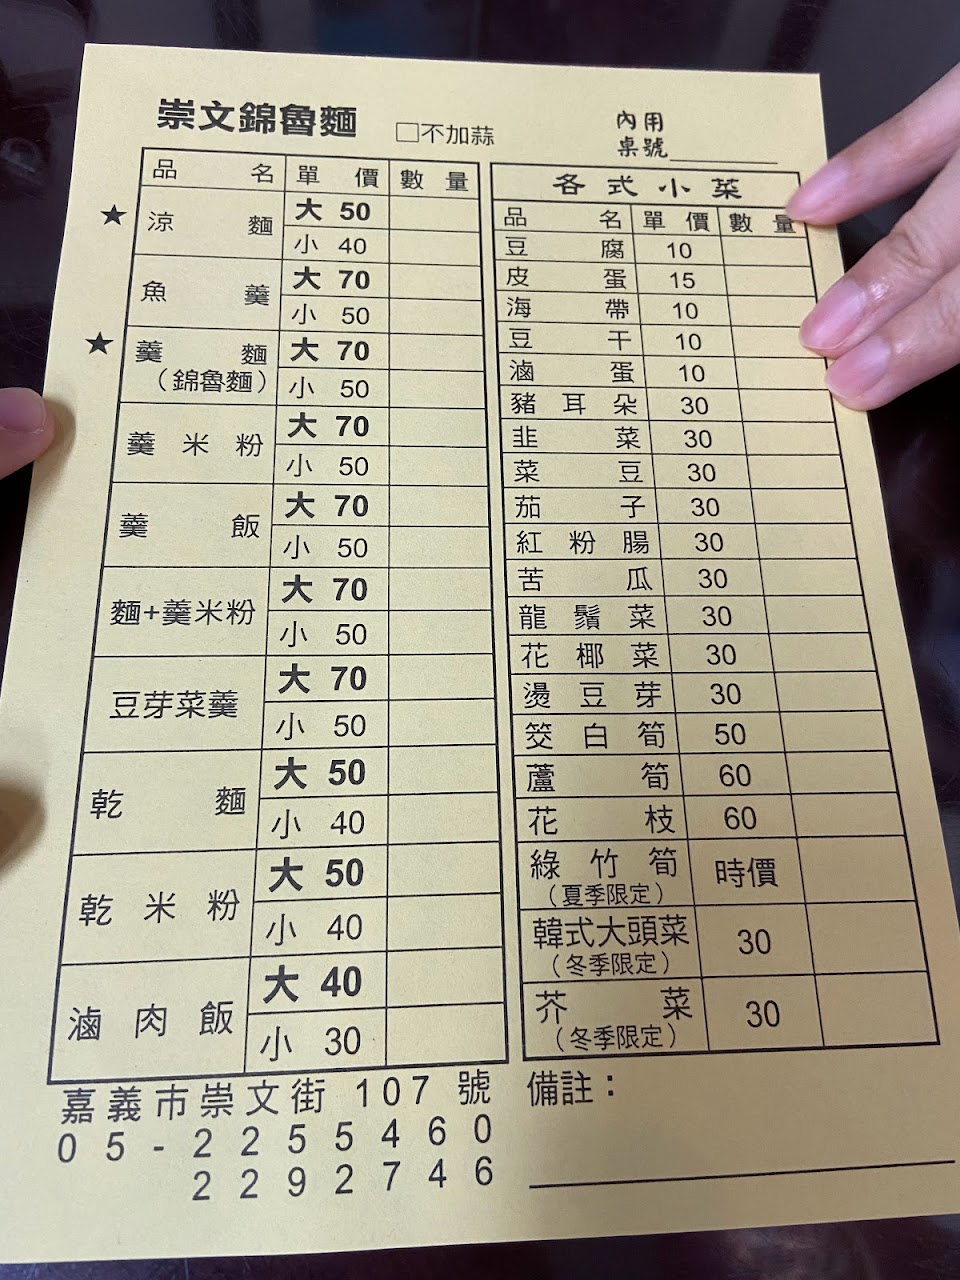 崇文錦魯麵 □不加蒜
內用
桌號
品名 單價 數量
★ 涼麵 大 50
小 40
魚羹 大 70
小 50
★ 羹麵 大 70
(錦魯麵) 小 50
羹米粉 大 70
小 50
羹飯 大 70
小 50
麵+羹米粉 大 70
小 50
豆芽菜羹 大 70
小 50
乾麵 大 50
小 40
乾米粉 大 50
小 40
滷肉飯 大 40
小 30
嘉義市崇文街107號
05-2255460
2292746
各式小菜
品名 單價 數量
豆腐 10
皮蛋 15
海帶 10
豆干 10
滷蛋 10
豬耳朵 30
韭菜 30
菜豆 30
茄子 30
紅粉腸 30
苦瓜 30
龍鬚菜 30
花椰菜 30
燙豆芽 30
筊白筍 50
蘆筍 60
花枝 60
綠竹筍 時價
(夏季限定)
韓式大頭菜 30
(冬季限定)
芥菜 30
(冬季限定)
備註：